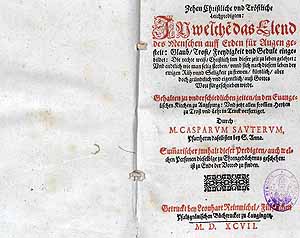 Zehen Christliche vnd Tröstliche
Leichpredigten:
In welchẽ das Elend
des Menschen auff Erden für Augen ge-
stelt: Glaub/ Trost/ Freydigkeit vnd Gedult einge-
bildet: Die rechte weiß/ Christlich inn dieser zeit zu leben gelehret:
Vnd endtlich wie man selig sterben/ vnnd sich nach disem leben der
ewigen Rhu vnnd Seligkeit zu frewen/ gründlich/ aber
doch gründtlich vnd eigentlich/ auß Gottes
Wort fürgeschriben wirdt.
Gehalten zu vnderschiedlichen zeiten/ in den Euange-
lischen Kirchen zu Augspurg: Vnd jetzt allen frommen Hertzen
zu Trost vnd lehr in Truck verfertiget.
Durch
M. CASPARVM SAVTERVM,
Pfarherrn daselbsten bey S. Anna.
Summarischer innhalt dieser Predigten/ auch in wel-
chen Personen dieselbige zu Ehrengedächtnus geschehen:
ist zu Ende der Vorred zu finden.
Getruckt bey Leonhart Reinmichel/ Fürstlichen
Pfaltzgräuischen Büchtrucker zu Laugingen,
M. D. XCVII.